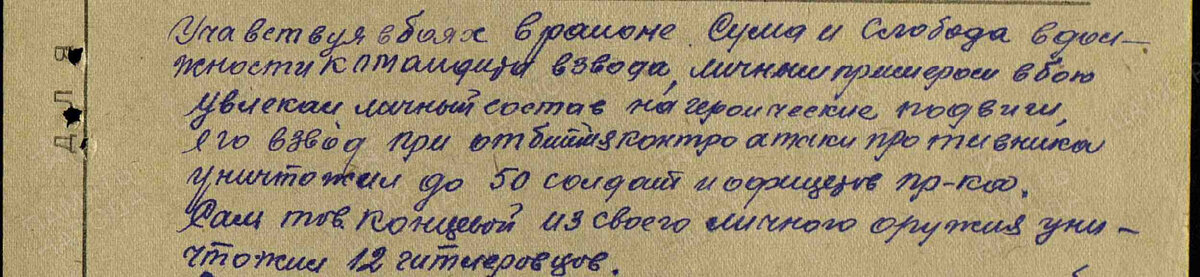 Учавствуя в боях в районе Сума и Слобода в дол-
жности командира взвода, личным примером в бою
увлекал личный состав на героические подвиги,
его взвод при отбитии контро атаки противника
уничтожил до 50 солдат и офицеров пр-ка.
Сам тов. Концевой из своего личного оружия уни-
чтожил 12 гитлеровцов.
Для